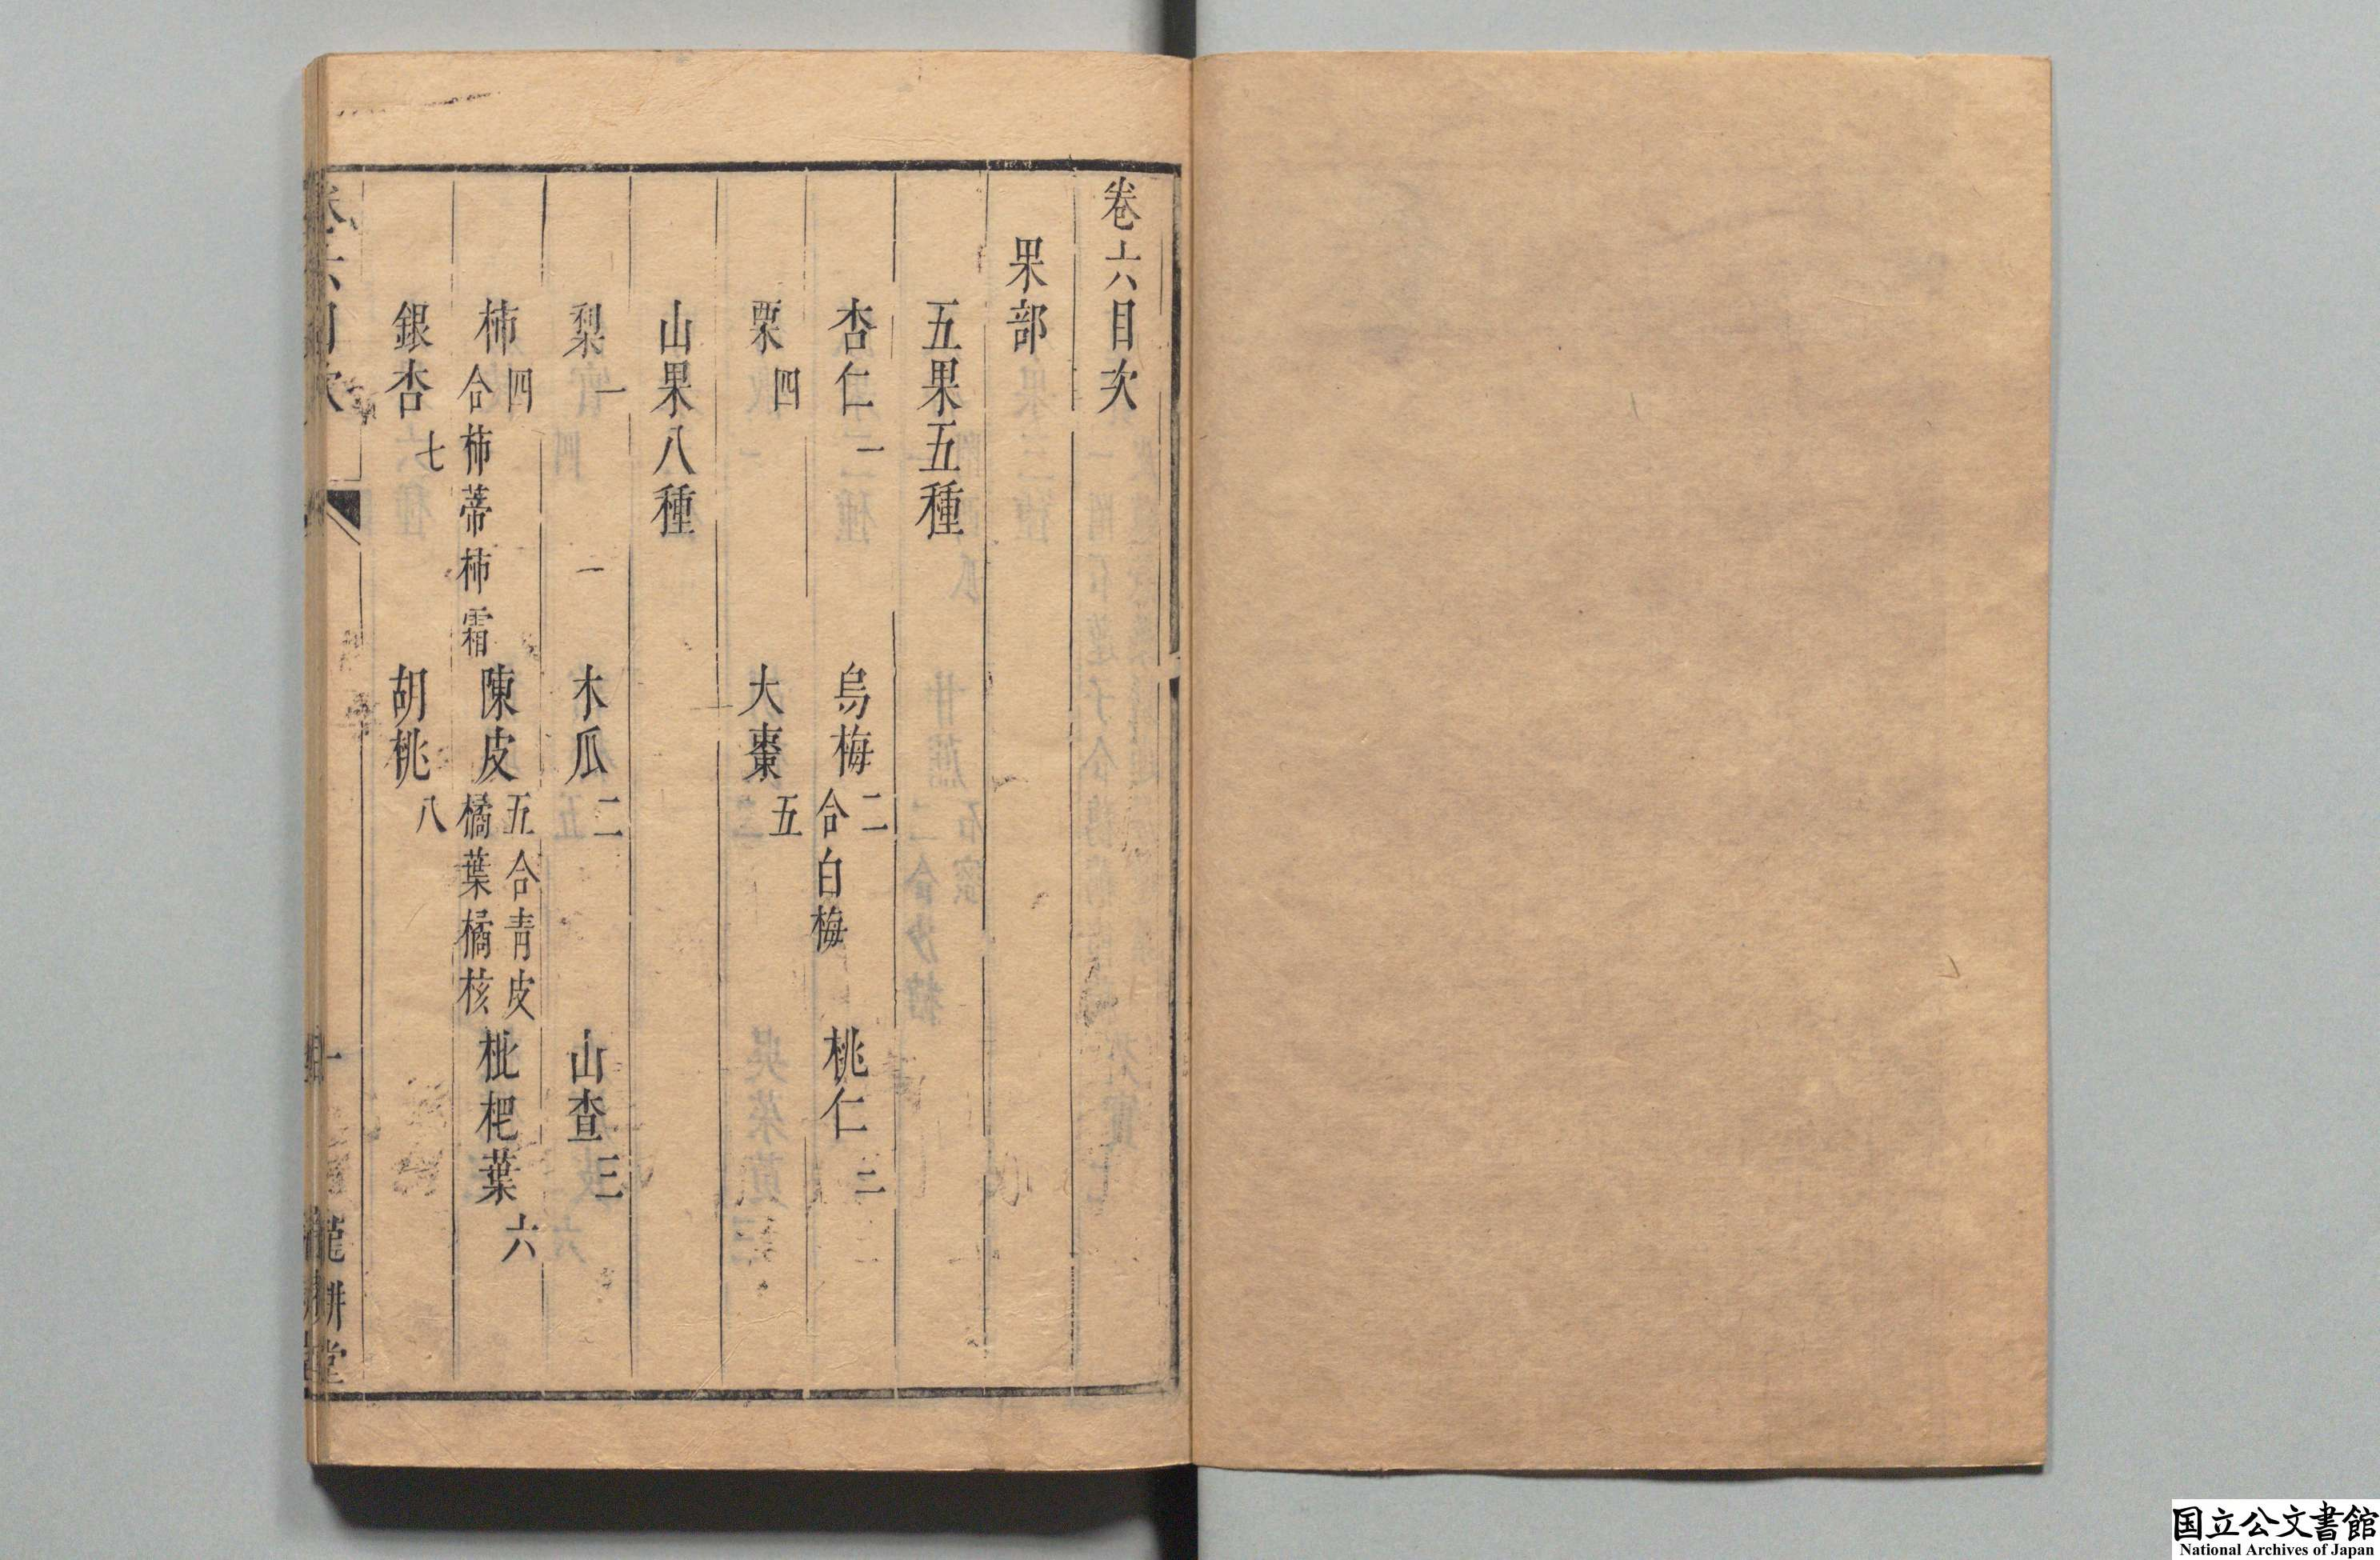 卷六目次
果部
五果五種
杏仁一 烏梅二合白梅 桃仁三
栗四 大棗五
山果八種
梨一 木瓜二 山查三
柿四合柿蒂柿霜 陳皮五合青皮橘葉橘核 枇杷葉六
銀杏七 胡桃八
卷六目次 一 耕堂
国立公文書館
National Archives of Japan